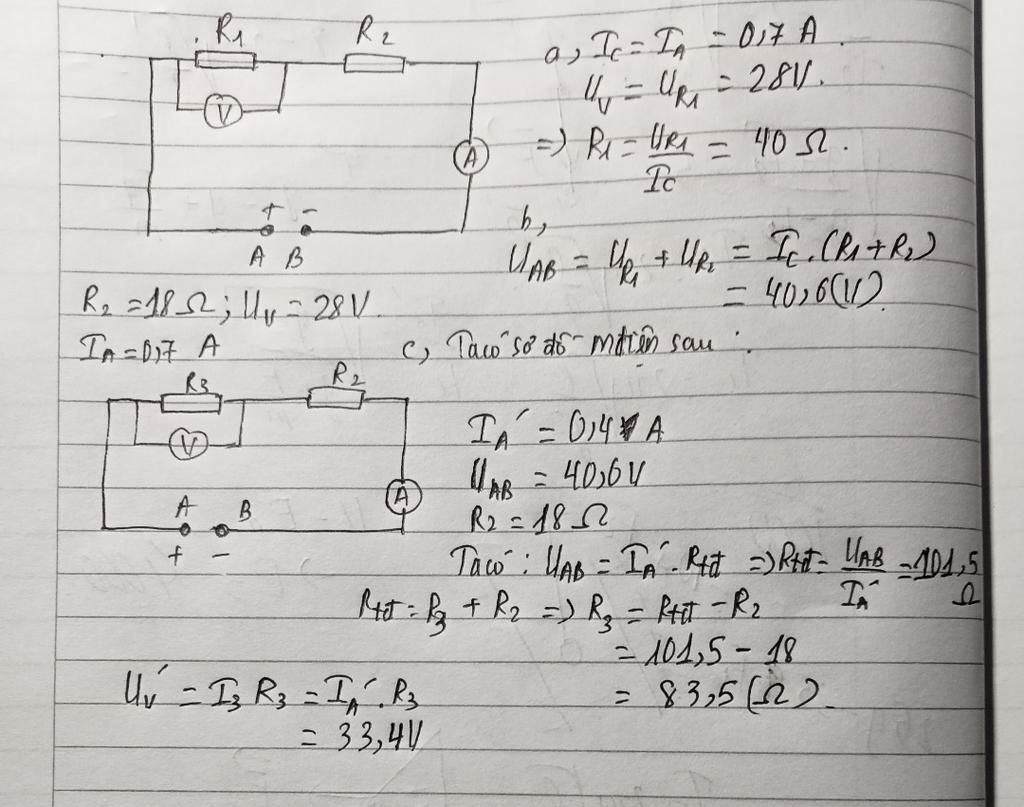 R1 R2
V
A
+ -
A B
R2 = 18 Ω ; UV = 28V.
IA = 0,7 A
a, Ic = IA = 0,7 A.
UV = UR1 = 28V.
=> R1 = UR1/Ic = 40 Ω.
b,
UAB = UR1 + UR2 = Ic.(R1+R2)
= 40,6(V)
c, Ta có sơ đồ mđiện sau :
R3 R2
V
A
A B
+ -
IA' = 0,4 A
UAB = 40,6V
R2 = 18 Ω
Ta có : UAB = IA'. Rtđ => Rtđ = UAB/IA' = 101,5 Ω
Rtđ = R3 + R2 => R3 = Rtđ - R2
= 101,5 - 18
= 83,5 (Ω).
UV' = I3 R3 = IA'. R3
= 33,4V